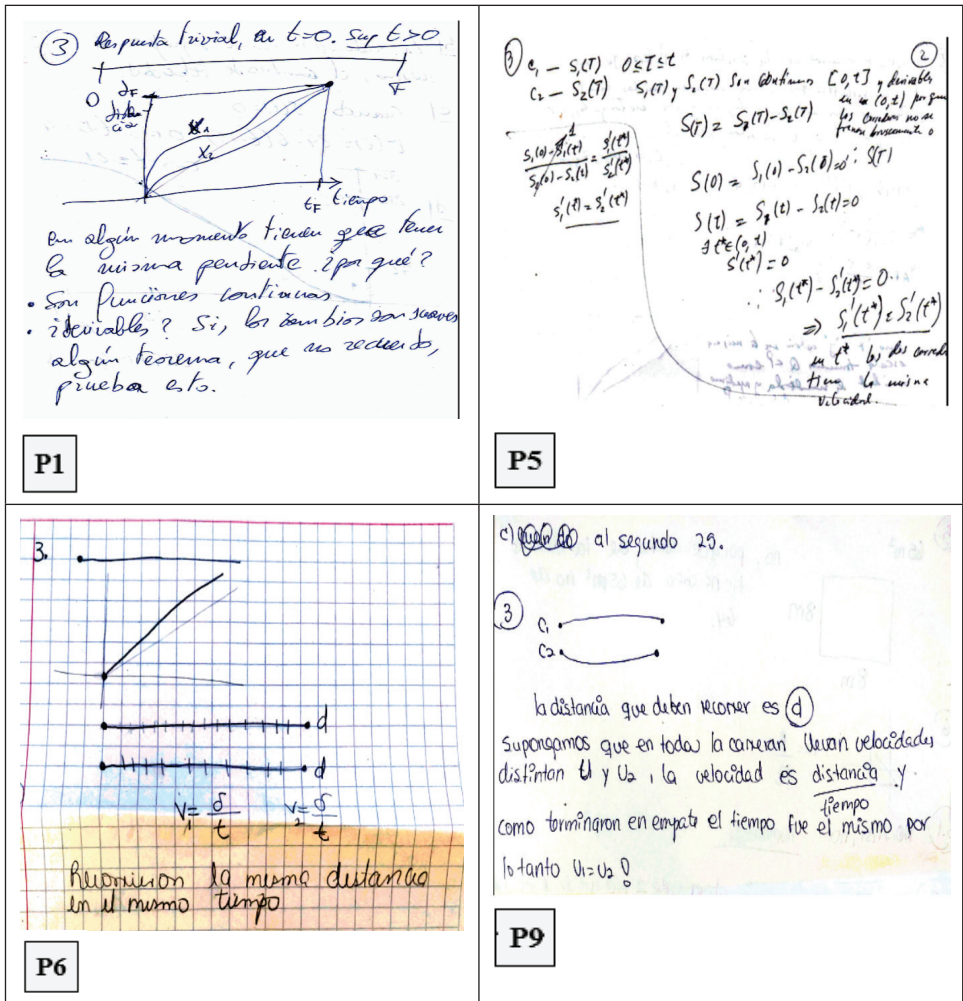 ③ Respuesta trivial, en t=0. Sup t>0
0
F
d_F
distancia
X_1
X_2
t_F tiempo
en algún momento tienen que tener
la misma pendiente ¿por qué?
• Son funciones continuas
• ¿derivables? Si, los cambios son suaves
algún teorema, que no recuerdo,
prueba esto.
P1
②
3) C_1 – S_1(T) 0≤T≤t
C_2 – S_2(T) S_1(T) y S_2(T) Son continuas [0,t] y derivables
en (0,t) porque
los corredores no se
frenan bruscamente
S(T) = S_1(T) - S_2(T)
(S_1(0) - S_1(t))/(S_2(0) - S_2(t)) = S_1'(t*)/S_2'(t*)
S_1'(t*) = S_2'(t*)
S(0) = S_1(0) - S_2(0) = 0
S(t) = S_1(t) - S_2(t) = 0
∃ t*∈(0,t)
S'(t*) = 0
∴ S_1'(t*) - S_2'(t*) = 0
⇒ S_1'(t*) = S_2'(t*)
en t* los dos
tienen la misma
velocidad.
P5
3.
d
d
V_1 = d/t V_2 = d/t
Recorrieron la misma distancia
en el mismo tiempo
P6
c) al segundo 25.
③
C_1
C_2
la distancia que deben recorrer es ⓓ
Supongamos que en toda la carreran llevan velocidades
distintan U_1 y U_2, la velocidad es distancia y
tiempo
como terminaron en empate el tiempo fue el mismo por
lo tanto U_1=U_2
P9